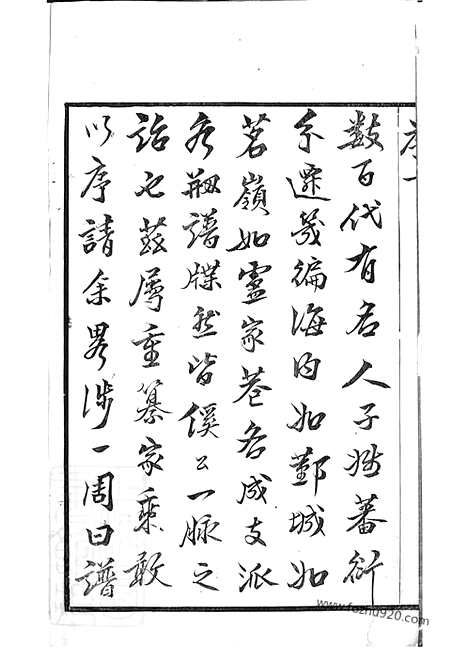 序一
數百代有名人子姓蕃衍
分遷幾徧海内如鄞城如
茗嶺如盧家巷各成支派
各剏譜牒然皆傒公一脈之
詒也茲届重纂家乘敢
以序請余畧涉一周曰譜
www.fozhu920.com